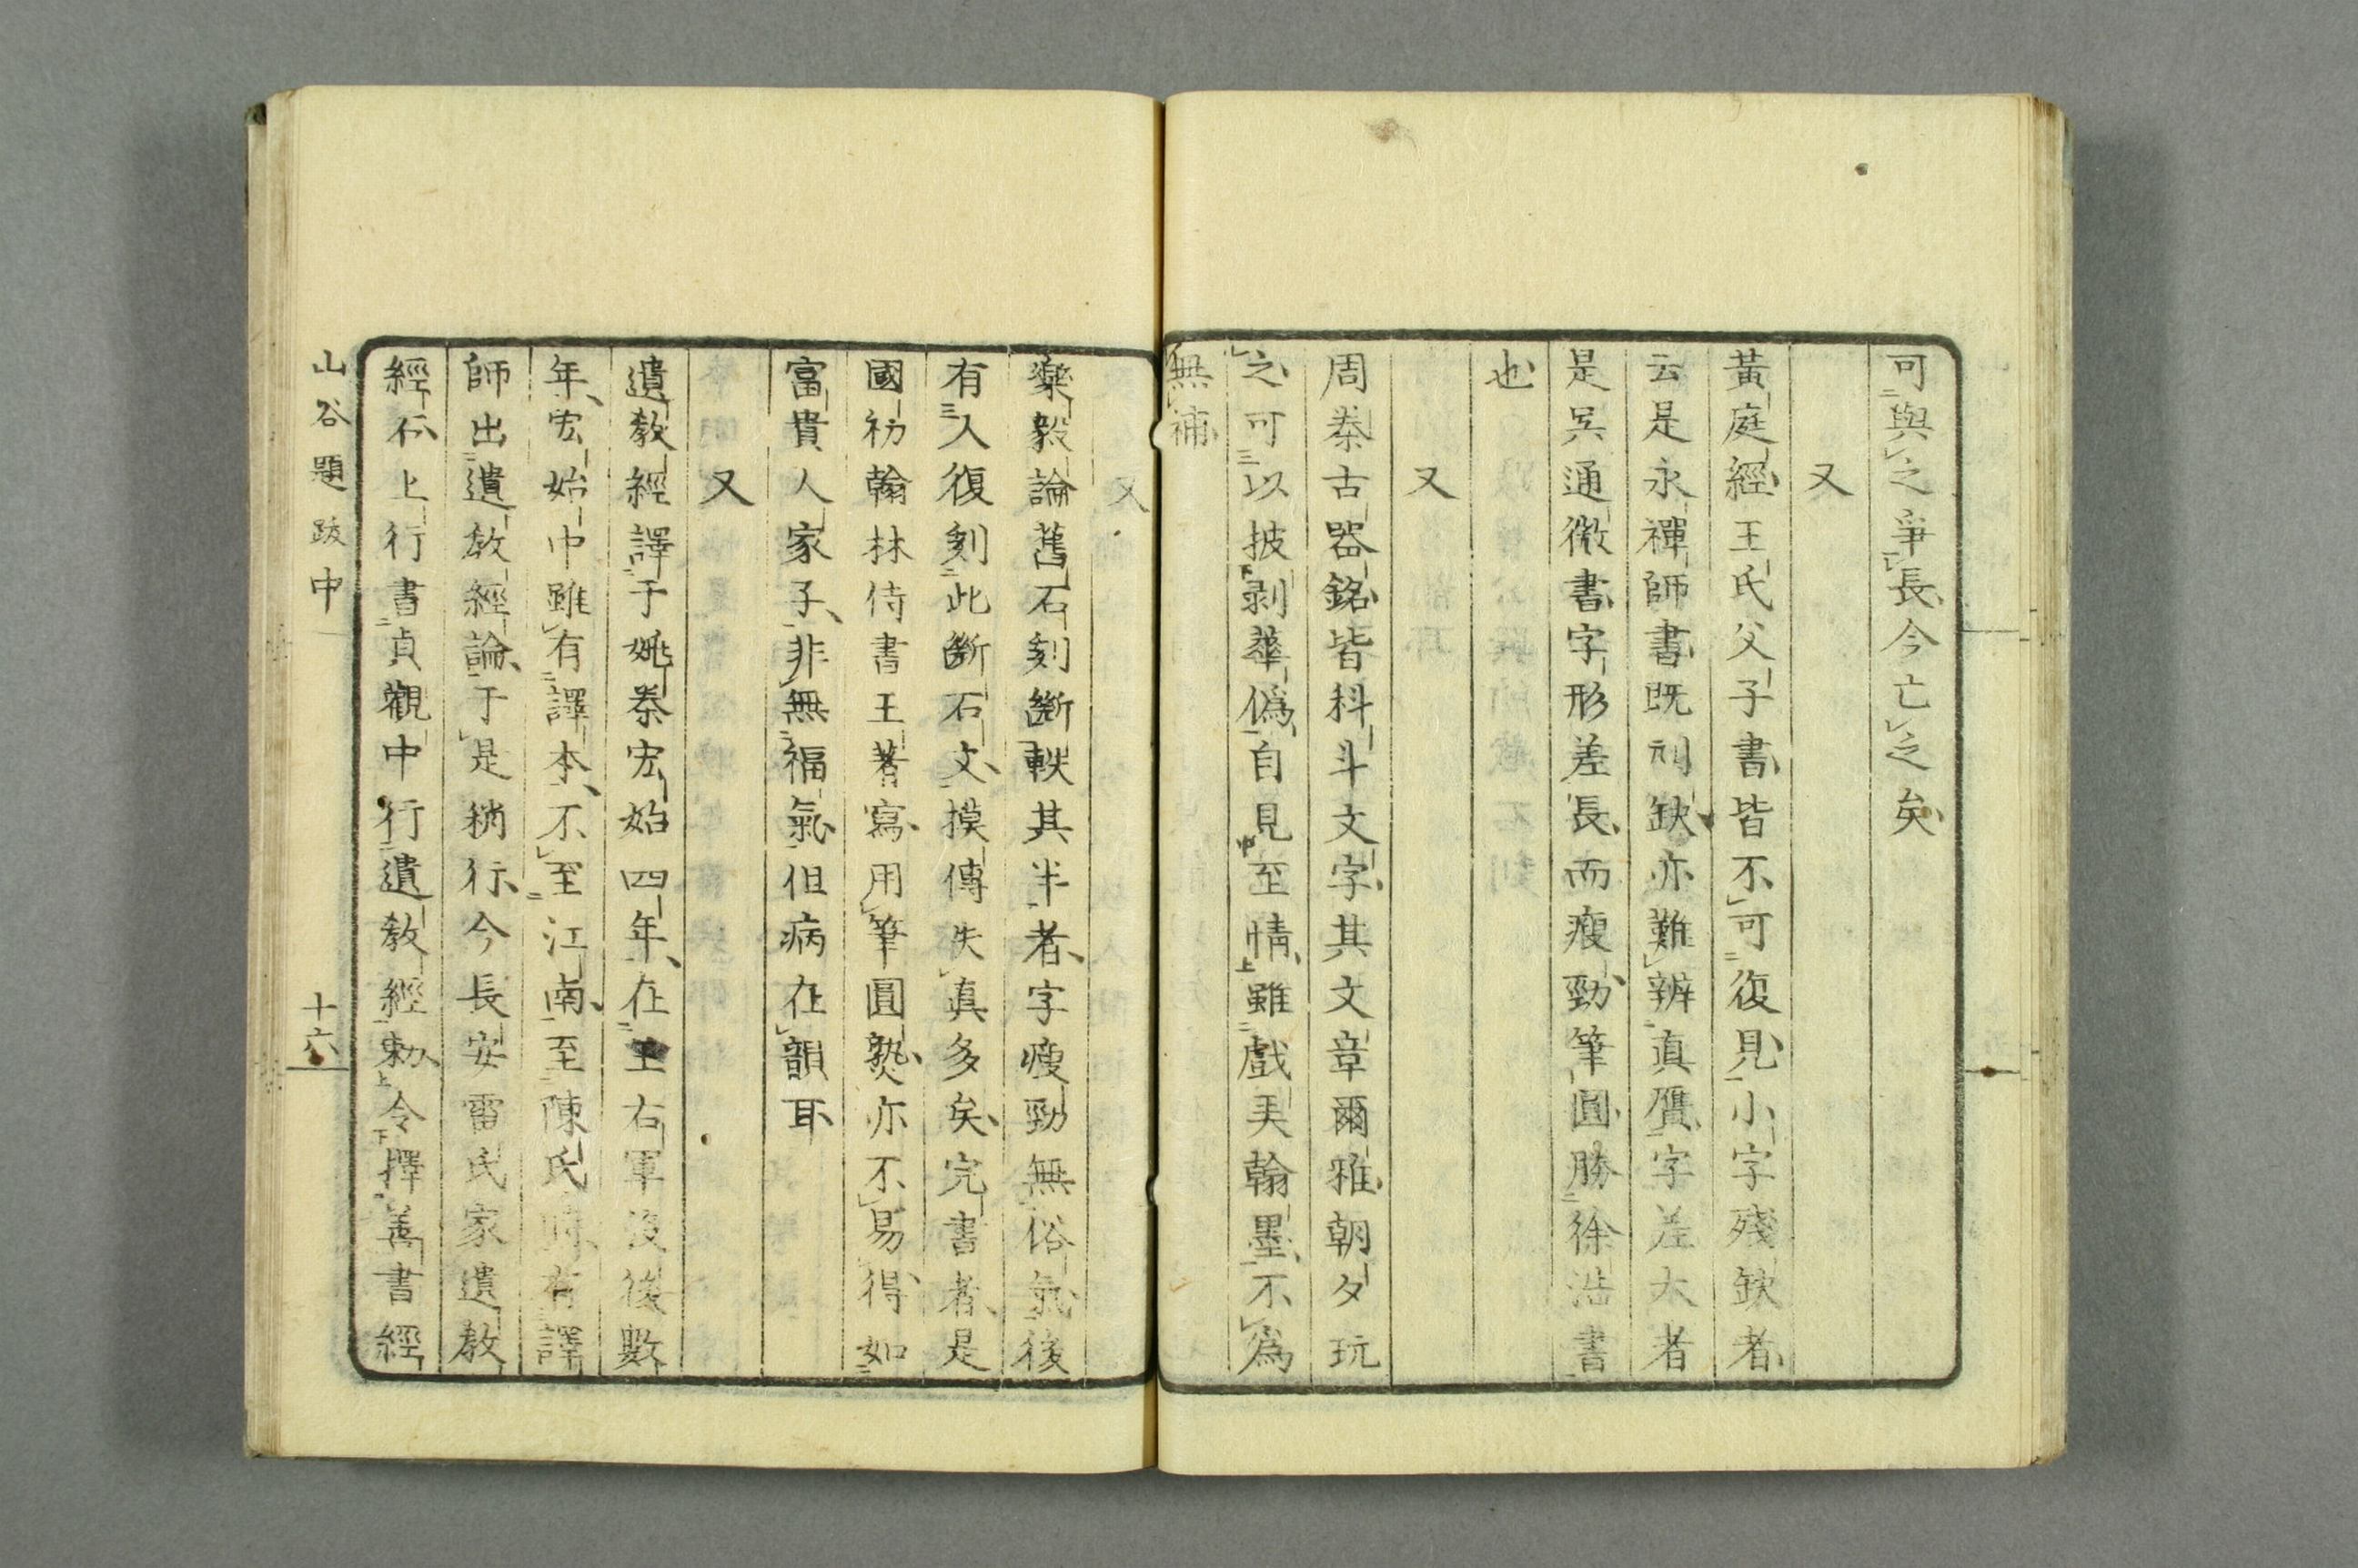 可與之爭長今亡之矣
又
黃庭經王氏父子書皆不可復見小字殘缺者
云是永禪師書既刓缺亦難辨真贋字差大者
是吴通微書字形差長而瘦勁筆圓勝徐浩書
也
又
周秦古器銘皆科斗文字其文章爾雅朝夕玩
之可以披剥華偽自見至情雖戲美翰墨不爲
無補
又
樂毅論舊石刻斷軼其半者字瘦勁無俗氣後
有人復刻此斷石文摸傳失真多矣完書者是
國初翰林侍書王著寫用筆圓熟亦不易得如
富貴人家子非無福氣但病在韻耳
又
遺教經譯于姚秦宏始四年在王右軍没後數
年宏始中雖有譯本不至江南至陳氏時有譯
師出遺教經論于是稍行今長安雷氏家遺教
經石上行書貞觀中行遺教經勅令擇善書經
山谷題跋中
十六